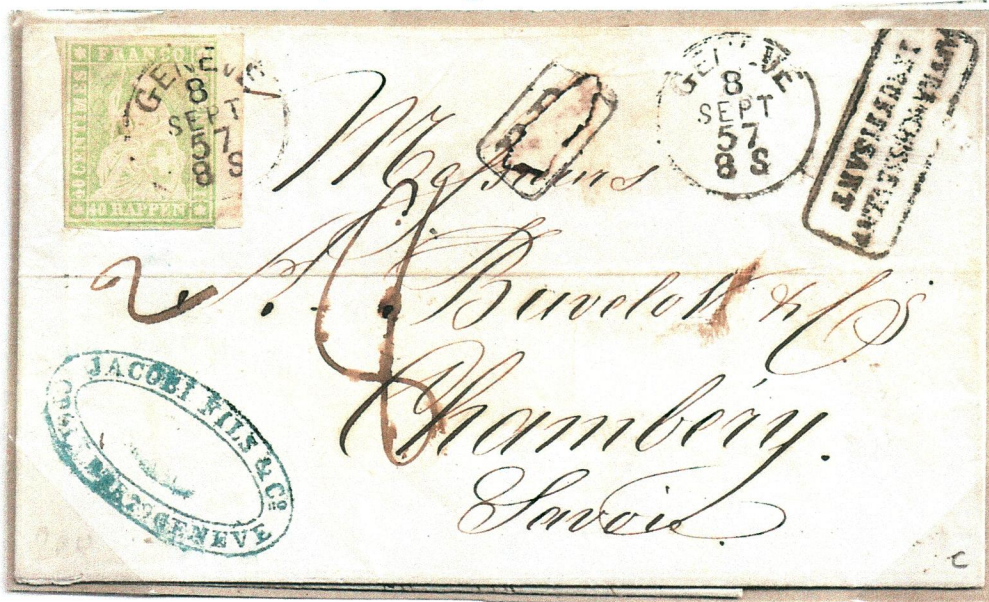 FRANCO
40 CENTIMES
40 RAPPEN
GENEVE
8
SEPT
57
8 S
P.D.
GENEVE
8
SEPT
57
8 S
AFFRANCHISSEMENT
INSUFFISANT
Messieurs
2
8
Buvelot & Co
Chambéry.
Savoie
JACOBI FILS & Co.
GENEVE
C